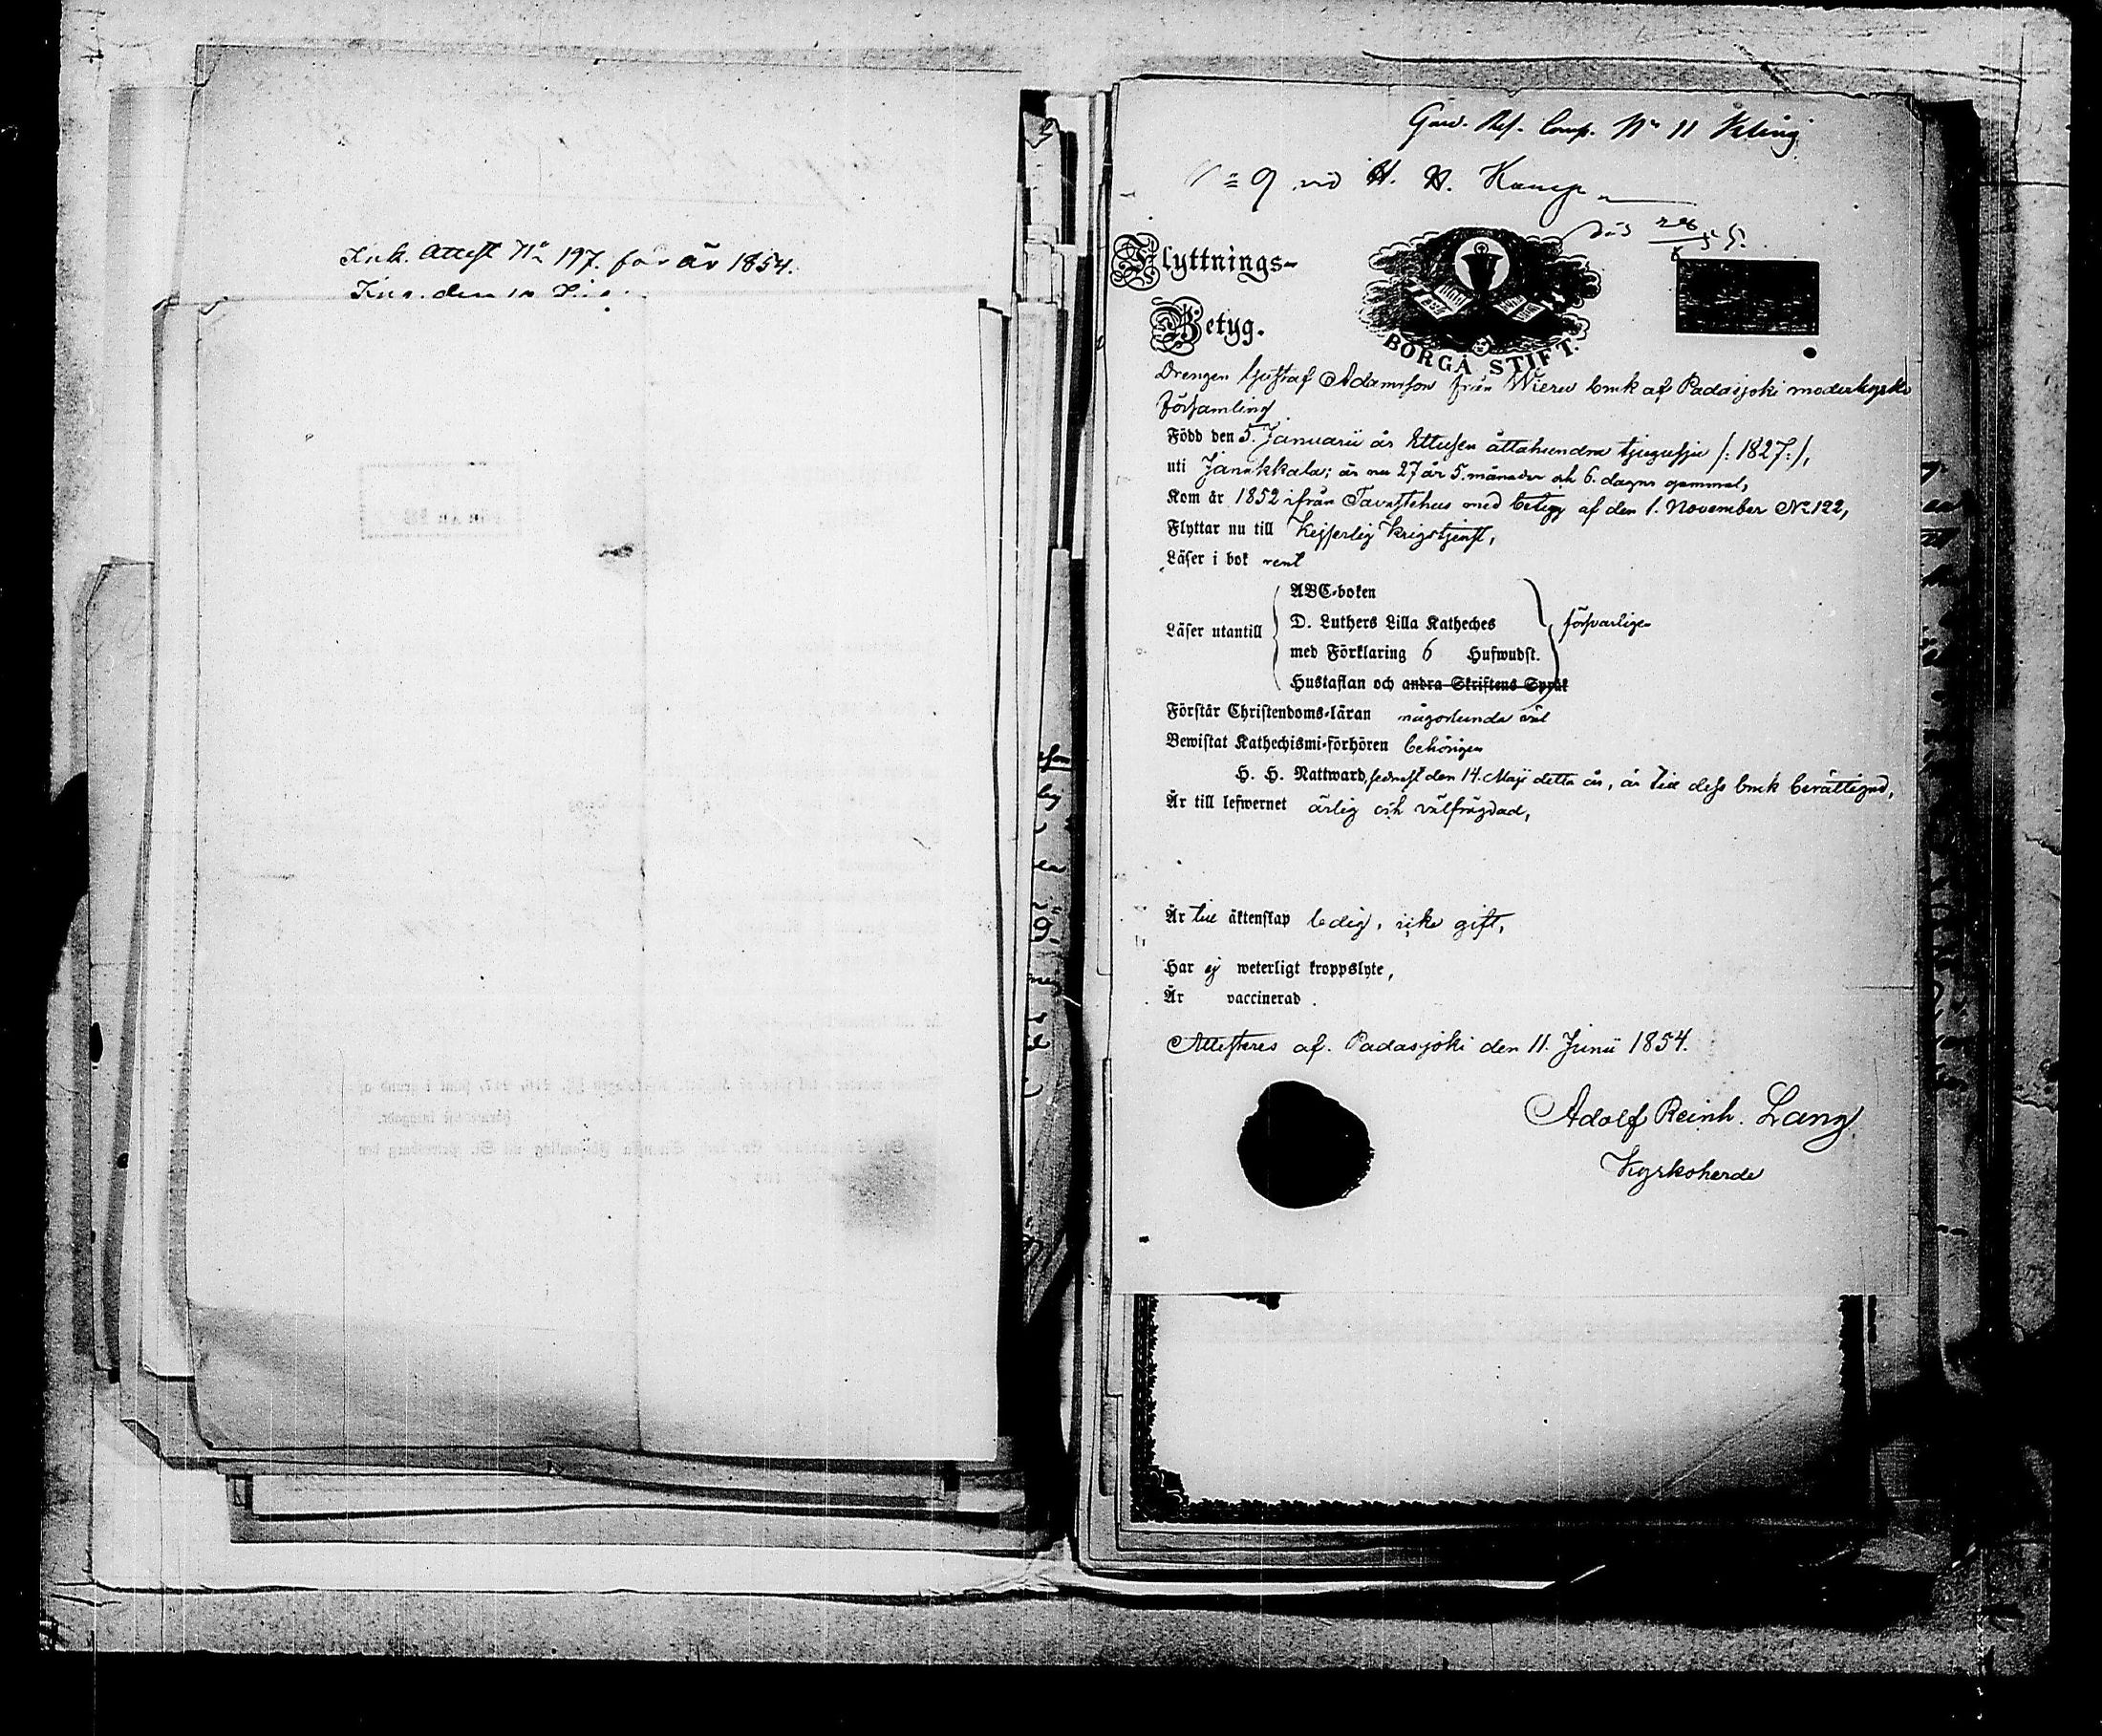 Ink. Attest No 197. för år 1854.
Gard. Res. Comp. No 11 Kling
No 9 vid H. K. Kamp
död 28/6 55.
Flyttnings-
Betyg.
BORGÅ STIFT.
Drengen Gustaf Adamsson från Wieru bruk af Padasjoki moderkyrko
församling
Född den 5. Januarii år Ettusen åttahundra tjugusju /: 1827:/,
uti Janakkala; är nu 27 år 5. månader och 6. dagar gammal,
Kom år 1852 ifrån Tavastehus med betyg af den 1. November No 122,
Flyttar nu till Kejserlig Krigstjenst,
Läser i bok rent
Läser utantill
ABC-boken
D. Luthers Lilla Katheches
med Förklaring 6 Hufwudst.
Hustaflan och andra Skriftens Språk
försvarligen
Förstår Christendoms-läran någorlunda väl
Bewistat Kathechismi-förhören behörigen
H. H. Nattward, sednast den 14. Maji detta år, är till dess bruk berättigad,
Är till lefwernet ärlig och välfrägdad,
Är till äktenskap ledig, icke gift,
Har ej weterligt kroppslyte,
Är vaccinerad.
Attesteras af. Padasjoki den 11. Junii 1854.
Adolf Reinh. Lang
Kyrkoherde